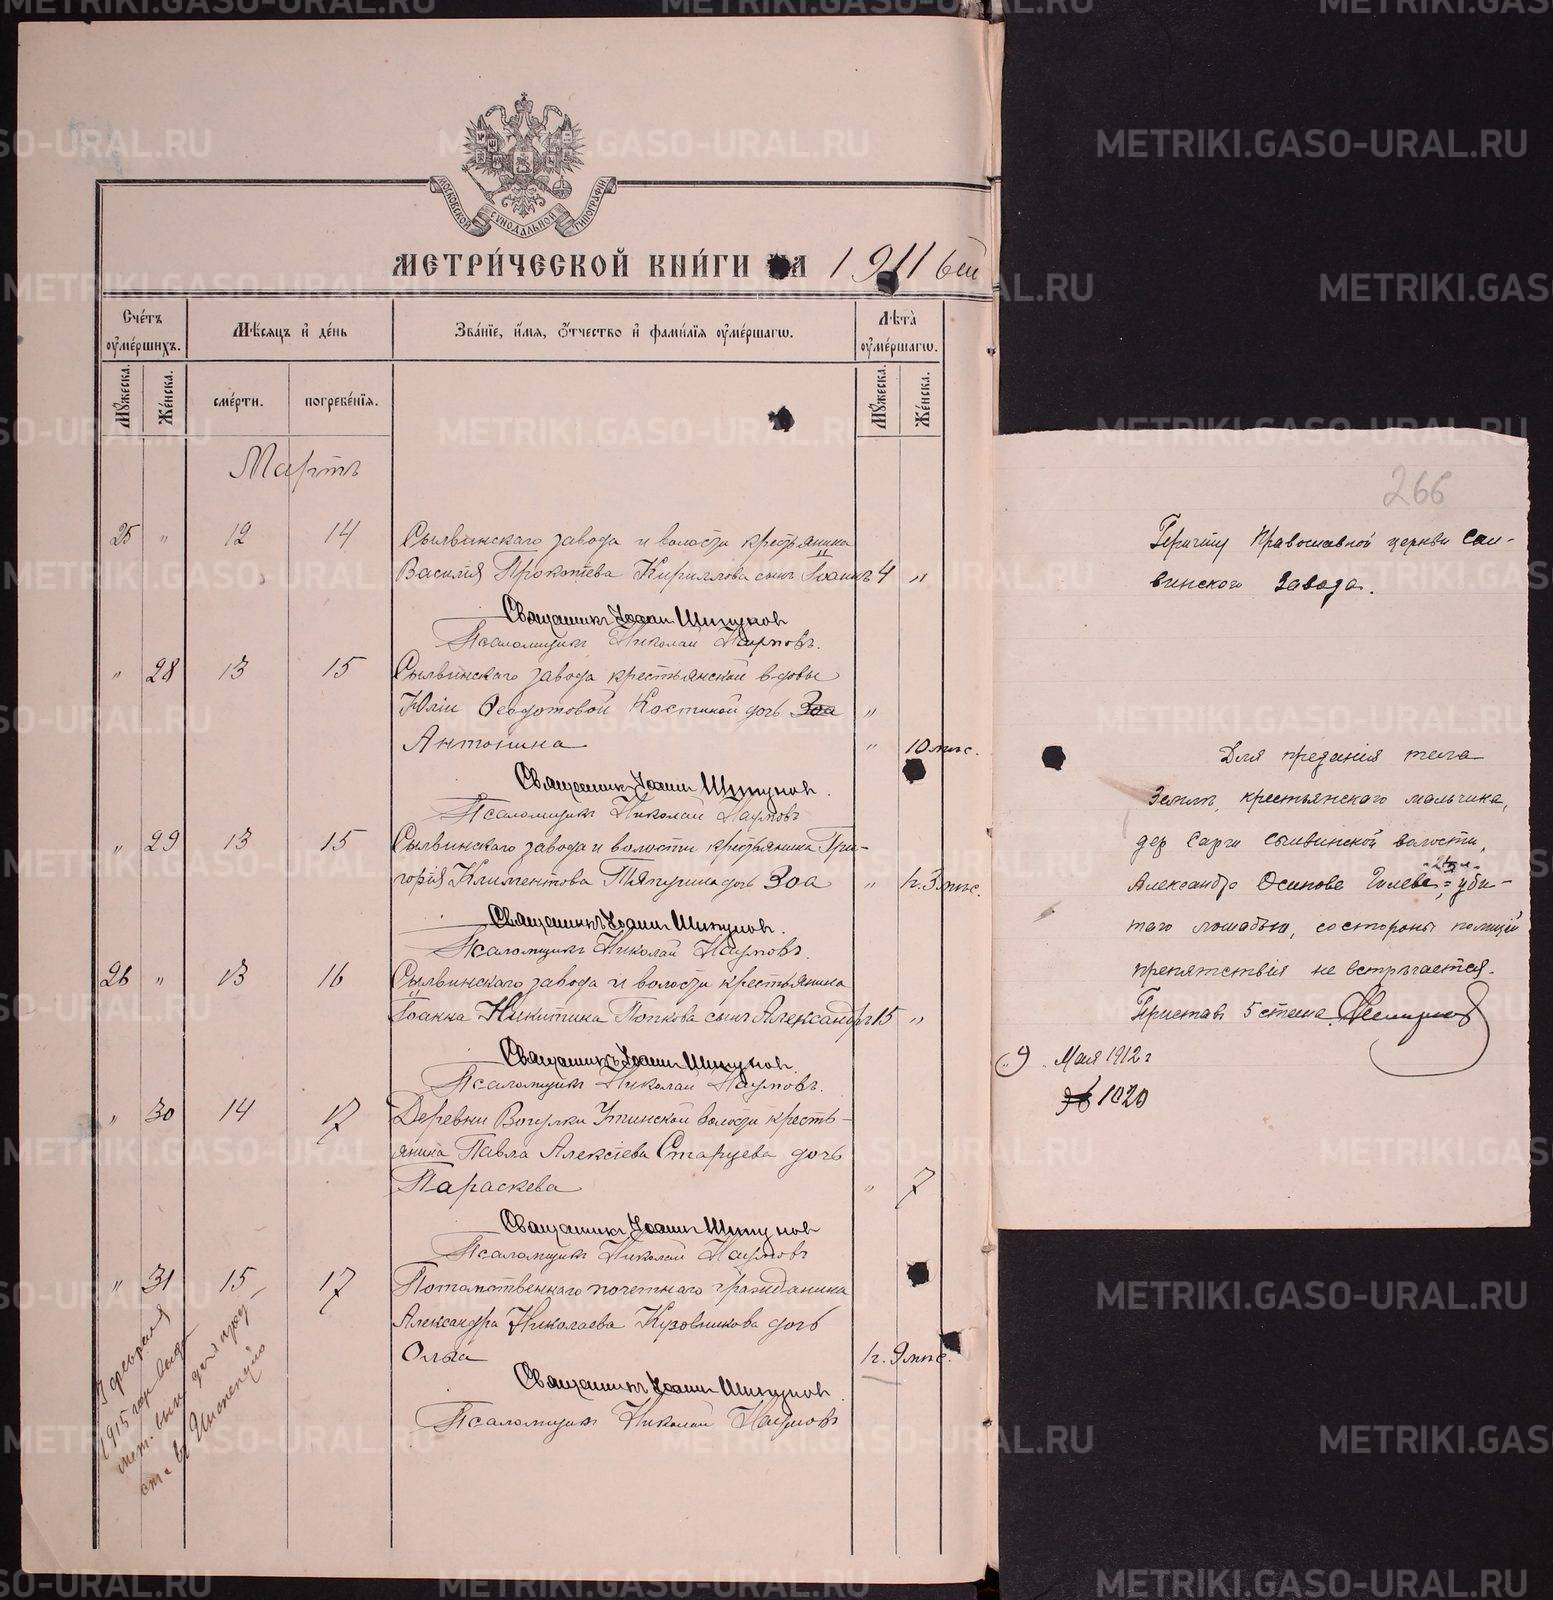 МОСКОВСКОЙ СѴНОДАЛЬНОЙ ТИПОГРАФІИ
МЕТРИ́ЧЕСКОЙ КНИ́ГИ НА 1911 ый
Сче́тъ ᲂу҆ме́ршихъ.
Мѣ́сяцъ и҆ де́нь
Зва́нїе, и҆́мя, ѻ҆́тчество и҆ фами́лїя ᲂу҆ме́ршагѡ.
Лѣ́та ᲂу҆ме́ршагѡ.
Мꙋ́жеска.
Же́нска.
сме́рти.
погребе́нїя.
Мꙋ́жеска.
Же́нска.
Мартъ
25 " 12 14 Сылвинскаго завода и волости крестьянина
Василія Прокопіева Кириллова сынъ Іоаннъ 4 "
Священникъ Іоаннъ Шипунов
Псаломщикъ Николай Наумовъ.
" 28 13 15 Сылвинскаго завода крестьянской вдовы
Юліи Ѳеодотовой Костиной дочь Зоа "
Антонина " 10 мѣс.
Священникъ Іоаннъ Шипунов.
Псаломщикъ Николай Наумовъ
" 29 13 15 Сылвинскаго завода и волости крестьянина Гри-
горія Климентова Тяпугина дочь Зоа " н. 3 мѣс.
Священникъ Іоаннъ Шипунов.
Псаломщикъ Николай Наумовъ.
26 " 13 16 Сылвинскаго завода и волости крестьянина
Іоанна Никитина Попкова сынъ Александръ 15 "
Священникъ Іоаннъ Шипунов.
Псаломщикъ Николай Наумовъ.
" 30 14 17 Деревни Вогулки Уткинской волости кресть-
янина Павла Алексіева Старцева дочь
Параскева " 7
Священникъ Іоаннъ Шипунов
Псаломщикъ Николай Наумовъ
" 31 15 17 Потомственнаго почетнаго гражданина
Александра Николаева Кузовникова дочь
Ольга н. 9 мѣс.
Священникъ Іоаннъ Шипунов.
Псаломщикъ Николай Наумовъ
3 февраля
1915 год выд
мет. вып.
266
Причту Православной церкви Сыл-
винского Завода.
Для преданія тела
Земле, крестьянского мальчика,
дер Сарги Сылвинской волости,
Александр Осипове Гилеве, - 2х л. - уби-
таго лошадью, со стороны полиціи
препятствія не встречается.
Пристав 5 стана
9 Мая 1912 г
№ 1020
METRIKI.GASO-URAL.RU